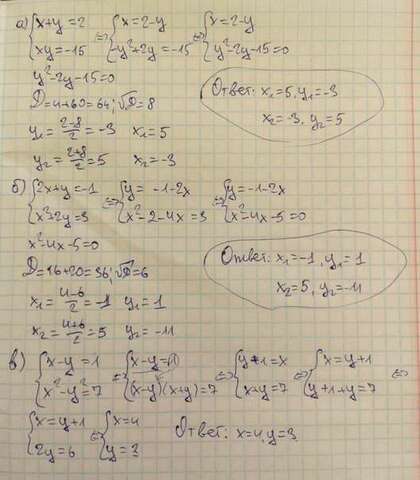 а) {x+y=2 ⇔ {x=2-y ⇔ {x=2-y
{xy=-15 {-y²+2y=-15 {y²-2y-15=0
y²-2y-15=0
D=4+60=64; √D=8
y₁=(2-8)/2=-3 x₁=5
y₂=(2+8)/2=5 x₂=-3
Ответ: x₁=5, y₁=-3
x₂=-3, y₂=5
б) {2x+y=-1 ⇔ {y=-1-2x ⇔ {y=-1-2x
{x²+2y=3 {x²-2-4x=3 {x²-4x-5=0
x²-4x-5=0
D=16+20=36; √D=6
x₁=(4-6)/2=-1 y₁=1
x₂=(4+6)/2=5 y₂=-11
Ответ: x₁=-1, y₁=1
x₂=5, y₂=-11
в) {x-y=1 ⇔ {x-y=1 ⇔ {y+1=x ⇔ {x=y+1
{x²-y²=7 {(x-y)(x+y)=7 {x+y=7 {y+1+y=7
{x=y+1 ⇔ {x=4
{2y=6 {y=3
Ответ: x=4, y=3